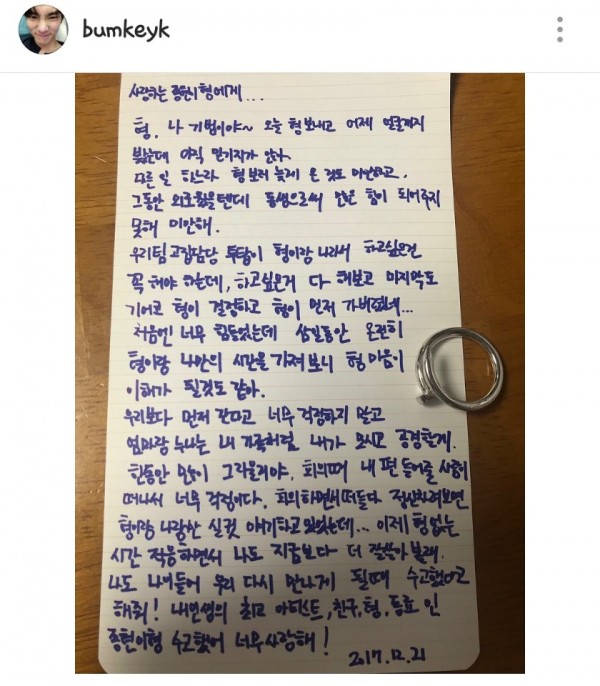 bumkeyk
사랑하는 종현이형에게...
형. 나 기범이야~ 오늘 형 보내고 어제 얼굴까지
봤는데 아직 믿기지가 않아.
다른 일 하느라 형 보러 늦게 온 것도 미안하고.
그동안 외로웠을텐데 동생으로써 많은 힘이 되어주지
못해 미안해.
우리팀 고집담당 투탑이 형이랑 나라서 하고싶은건
꼭 해야 하는데, 하고싶은거 다 해보고 마지막도
기어코 형이 결정하고 형이 먼저 가버렸네...
처음엔 너무 힘들었는데 삼일동안 온전히
형이랑 나만의 시간을 가져보니 형 마음이
이해가 될것도 같아.
우리보다 먼저 간다고 너무 걱정하지 말고
엄마랑 누나는 내 가족처럼 내가 모시고 공경할게.
한동안 많이 그리울거야. 회의때 내 편 들어줄 사람이
떠나서 너무 걱정이다. 회의하면서 떠들다 정신차려보면
형이랑 나랑만 실컷 얘기하고 있었는데... 이제 형 없는
시간 적응하면서 나도 지금보다 더 잘 살아볼래.
나도 나이들어 우리 다시 만나게 될때 수고했다고
해줘! 내 인생의 최고 아티스트, 친구, 형, 동료 인
종현이형 수고했어 너무 사랑해!
2017.12.21